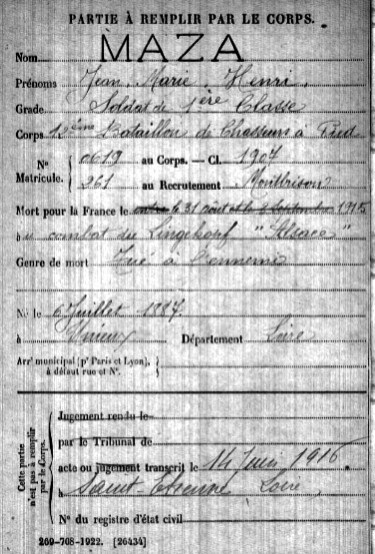 PARTIE À REMPLIR PAR LE CORPS.
Nom MAZA
Prénoms Jean, Marie, Henri,
Grade Soldat de 1ère Classe
Corps 12ème Bataillon de Chasseurs à Pied
No 0619 au Corps. — Cl. 1907
Matricule. 261 au Recrutement Montbrison
Mort pour la France le 31 août et le 1915
au combat du Lingekopf "Alsace"
Genre de mort Tué à l'ennemi
Né le 6 Juillet 1887
à Département Loire
Arrt municipal (pr Paris et Lyon),
à défaut rue et No.
Cette partie
n'est pas à remplir
par le Corps.
Jugement rendu le
par le Tribunal de
acte ou jugement transcrit le 14 Juin 1916.
à Saint-Etienne Loire,
No du registre d'état civil
269-708-1922. [26434]